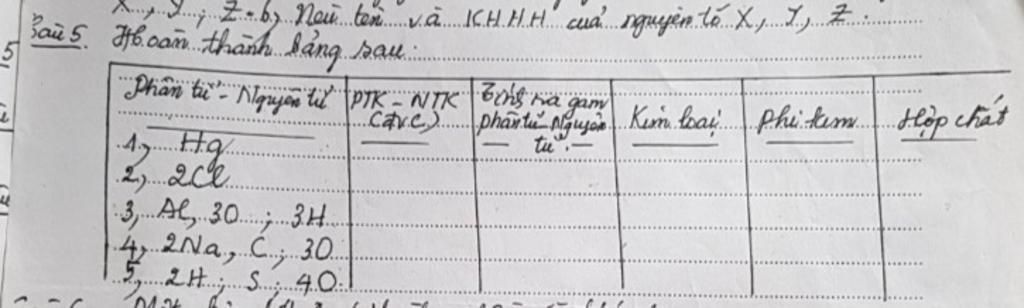 X, Y, Z. b, Nêu tên và KHHH của nguyên tố X, Y, Z.
Bài 5. Hoàn thành bảng sau.
Phân tử - Nguyên tử
PTK - NTK
(đvC)
Tính ra gam
phân tử - Nguyên
tử.
Kim loại
Phi kim
Hợp chất
1, Hg
2, 2Cl
3, Al, 3O ; 3H
4, 2Na, C ; 3O
5, 2H ; S ; 4O